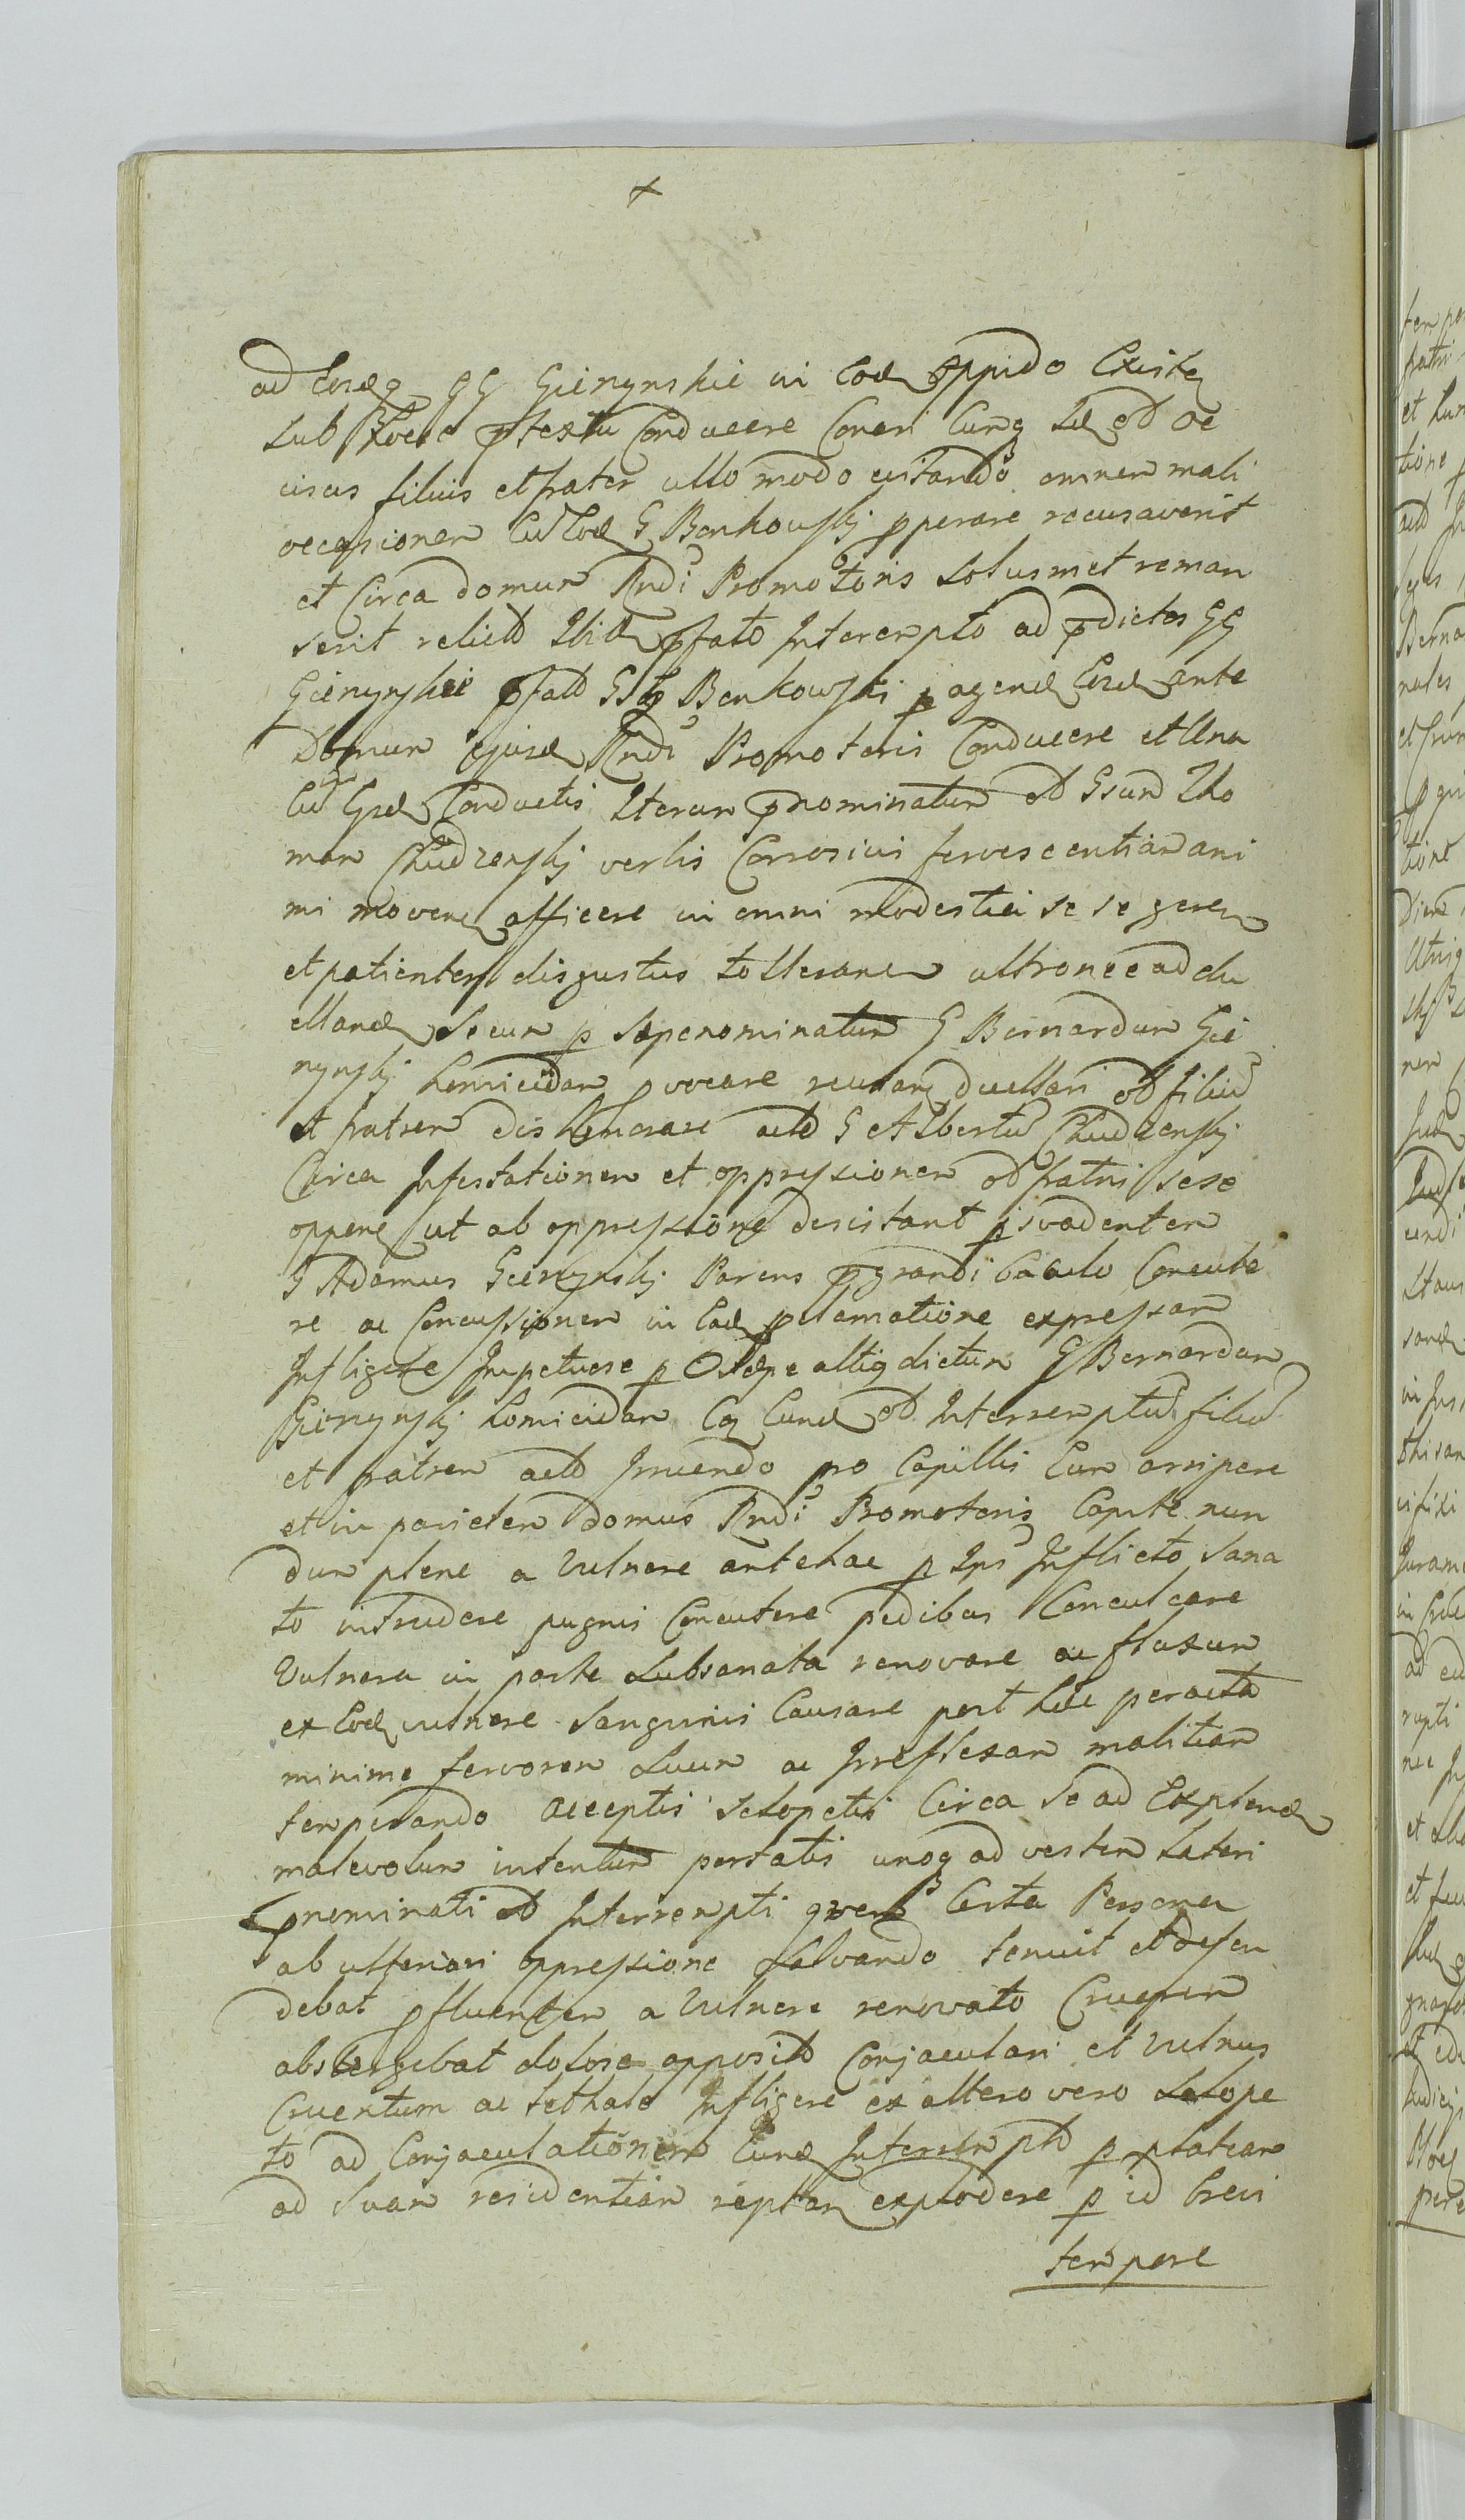 ad GG Gierzynskie in Eod Oppido Existen
sub hocce ptextu Conducere Conari Cumq Id od oc
cisus filius et frater ullo modo evitando omnem mali
occasionem Cu Eod G Bonkowskj pperare recusaverit
et Circa domum Rndi Promotoris solusmet reman
serit relicto Ibid pfato Interempto ad pdictos GG
Gierzynskie pfato G Bonkowski p agend Eosd ante
Domum ejusd Rndi Promotoris Conducere et Una
Cu Conductis Iterum pnominatum od Gsum Tho
mam Chudzenskj verbis Corrosivis fervescentiam ani
mi moven afficere in omni modestia se se geren
et patienter disgustus tolleranem ultronee ad du
elland secum p sepenominatum G Bernardum Gie
rzynskj homicidam pvocare recusan duellari od filiu
et fratrem dishonorare acto G Albertu Chudzenskj
Circa Infestationem et oppressionem od fratri sese
oppone ut ab oppressione desistant psvadentem
G Adamus Gierzynskj Parens pgrandi baculo Concute
re ac Concussionem in Ead pclamatione expressam
Infligere Impetuose p sepe dictum G Bernardum
Gierzynskj homicidam Eund od Interremptu filiu
et fratrem acto Irruendo pro Capillis Eum arripere
et in parietem domus Rndi Promotoris Capite nun
dum plene a Vulnere antehac p Ips Inflicto sana
to intrudere pugnis Concutere pedibus Conculcare
Vulnera in parte subsanata renovare ac fluxum
ex Eod vulnere Sanguinis Causare post hac peracta
minime fervorem suum ac Irreflexam malitiam
temperando acceptis sclopetis Circa se ad Explend
malevolum intentum portatis unoq ad vestem lateri
pnominati od Interrempti quem Certa Persona
ab ulteriori oppressione salvando tenuit et defen
debat pfluentem a Vulnere renovato Cruorem
abstergebat dolose apposito Conjaculari et Vulnus
Cruentum ac lethale Infligere ex altero vero sclope
to ad Conjaculationem Eund Interrempto p plateam
ad suam residentiam reptan explodere p id brevi
tempore